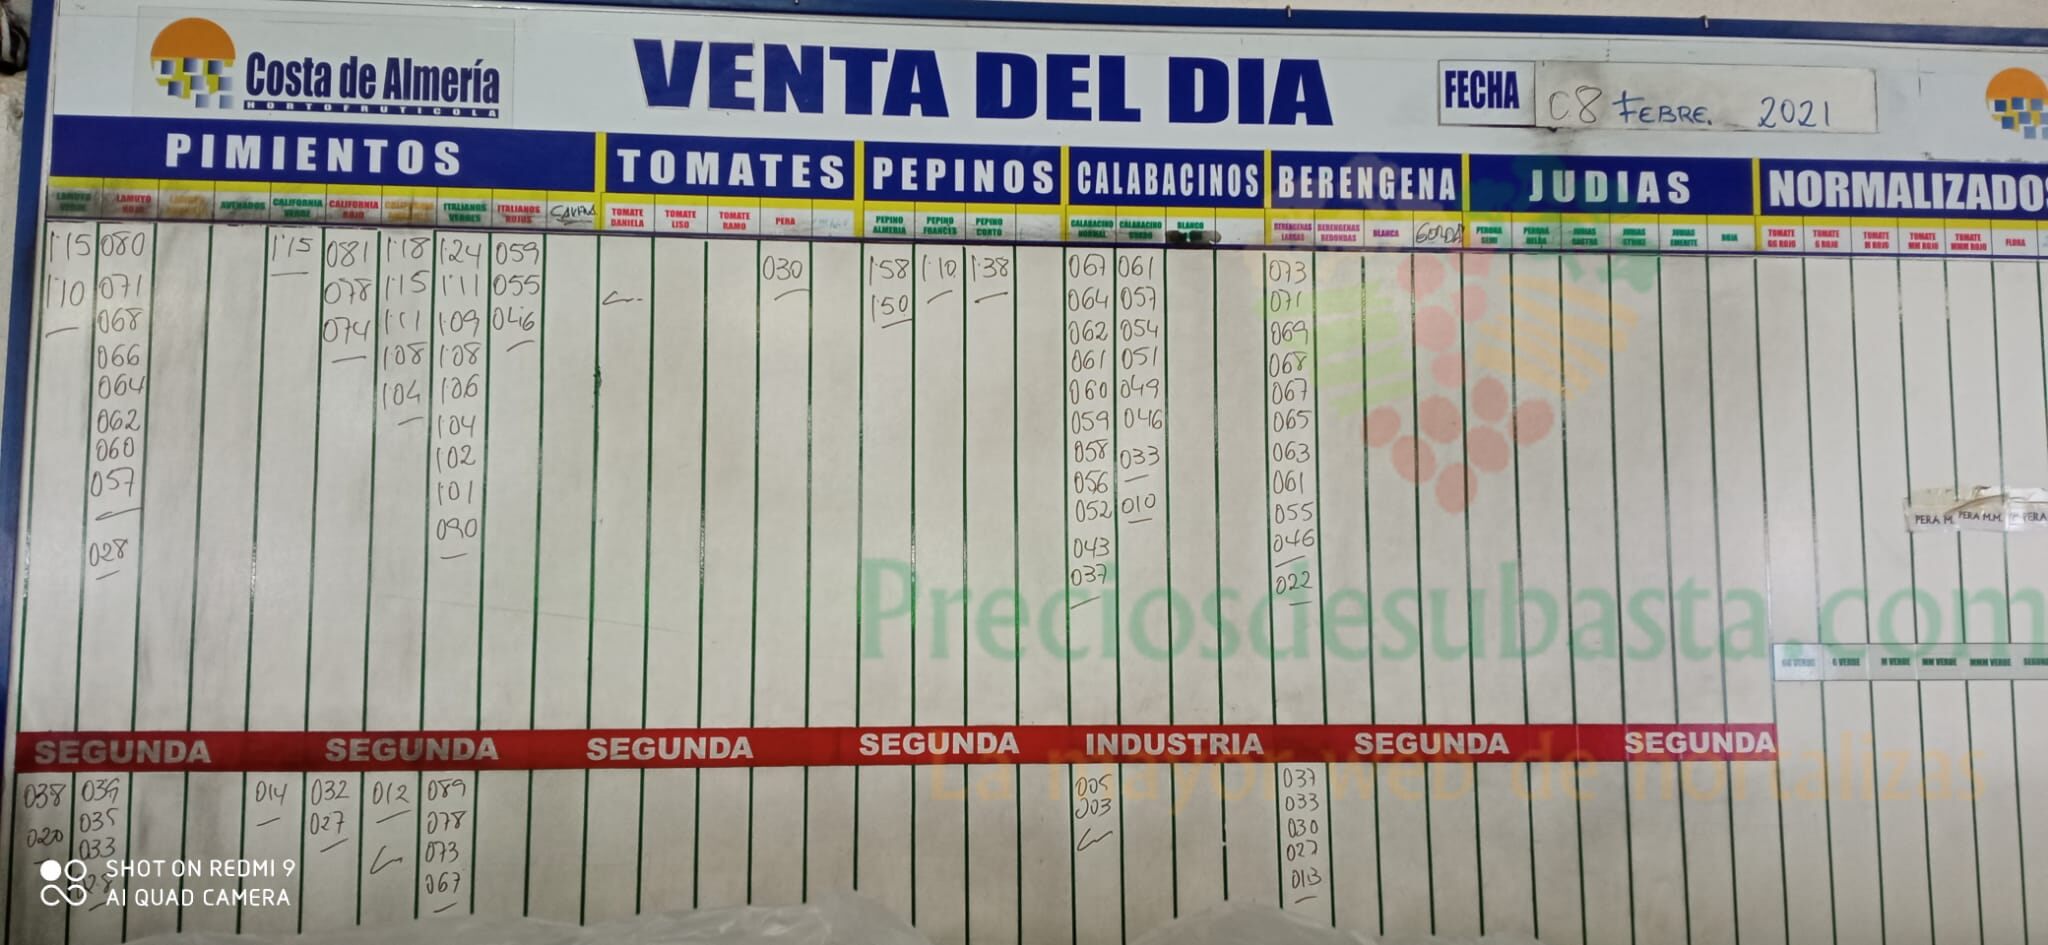 Costa de Almería
HORTOFRUTICOLA
VENTA DEL DIA
FECHA 08 FEBRE. 2021
PIMIENTOS TOMATES PEPINOS CALABACINOS BERENGENA JUDIAS NORMALIZADOS
LAMUYO VERDE LAMUYO ROJO AVENADOS CALIFORNIA VERDE CALIFORNIA ROJO ITALIANOS VERDES ITALIANOS ROJOS TOMATE DANIELA TOMATE LISO TOMATE RAMO PERA PEPINO ALMERIA PEPINO FRANCES PEPINO CORTO CALABACINO NORMAL CALABACINO GORDO BLANCO BERENGENAS LARGAS BERENGENAS REDONDAS BLANCA GORDA PERONA SEMI PERONA HELDA JUDIAS STRIKE JUDIAS EMERITE ROJA TOMATE GG ROJO TOMATE G ROJO TOMATE M ROJO TOMATE MM ROJO TOMATE MMM ROJO FLORA
1'15 080 1'15 081 1'18 1'24 059 030 1'58 1'10 1'38 067 061 073
1'10 071 078 1'15 1'11 055 1'50 064 057 071
068 074 1'11 1'09 046 062 054 069
066 1'08 1'08 061 051 068
064 1'04 1'06 060 049 067
062 1'04 059 046 065
060 1'02 058 033 063
057 1'01 056 061
028 090 052 010 055
043 046
037 022
PERA M. PERA M.M. PERA
Preciosdesubasta.com
GG VERDE G VERDE M VERDE MM VERDE MMM VERDE
SEGUNDA SEGUNDA SEGUNDA SEGUNDA INDUSTRIA SEGUNDA SEGUNDA
La mayor web de hortalizas
038 039 014 032 012 089 005 037
020 035 027 078 003 033
033 073 030
067 027
013
SHOT ON REDMI 9
AI QUAD CAMERA